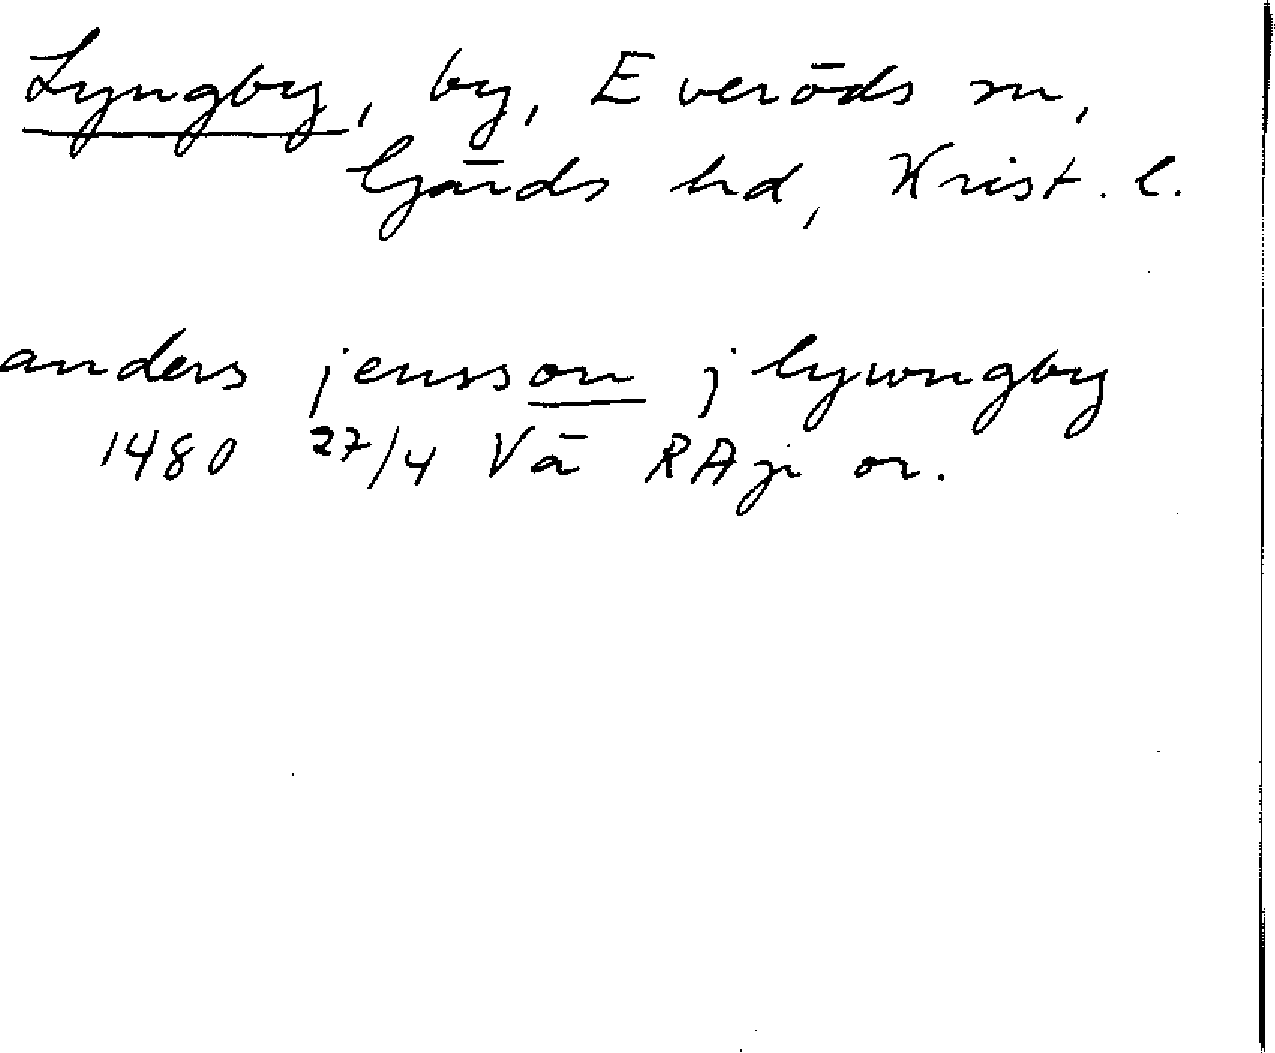 Lyngby, by, Everöds sn,
Gärds hd, Krist. l.
anders jensson j lywngby
1480 27/4 Vä RAp or.